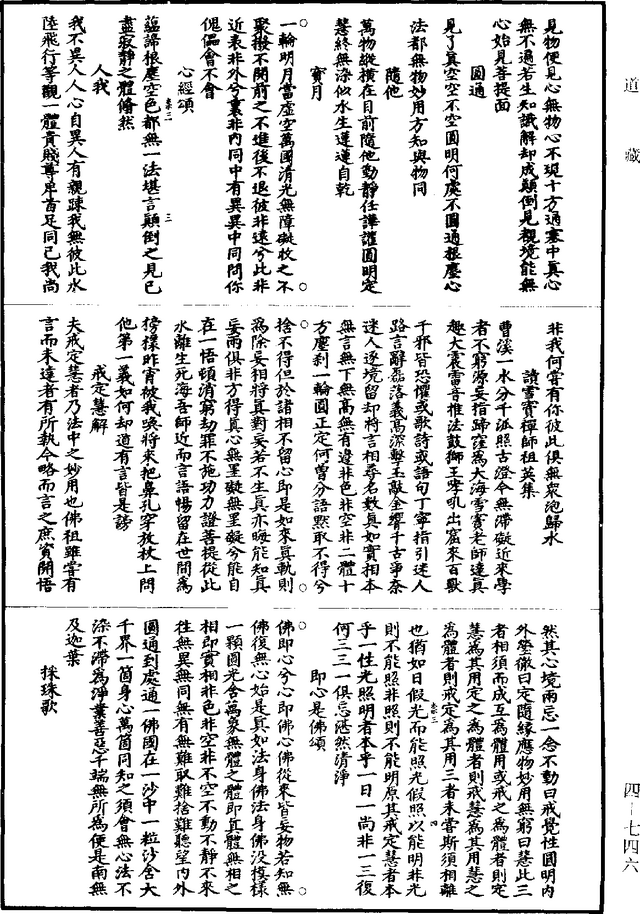 道藏
見物便見心無物心不現十方通塞中真心
無不遍若生知識解却成顛倒見覩境能無
心始見菩提面
圓通
見了真空空不空圓明何處不圓通根塵心
法都無物妙用方知與物同
隨他
萬物縱橫在目前隨他動靜任譁讙圓明定
慧終無染似水生蓮蓮自乾
寶月
一輪明月當虛空萬國清光無障礙收之不
聚撥不開前之不進後不退彼非遠兮此非
近表非外兮裏非內同中有異異中同問你
傀儡會不會
心經頌
蘊諦根塵空色都無一法堪言顛倒之見已
盡寂靜之體翛然
人我
我不異人人心自異人有親踈我無彼此水
陸飛行等觀一體貴賤尊卑首足同己我尚
非我何嘗有你彼此俱無衆泡歸水
讀雪竇禪師祖英集
曹溪一水分千派照古澄今無滯礙近來學
者不窮源妄指蹄窪為大海雪竇老師達真
趣大震雷音椎法鼓獅王哮吼出窟來百獸
千邪皆恐懼或歌詩或語句丁寧指引迷人
路言辭磊落義高深擊玉敲金響千古爭奈
迷人逐境留却將言相尋名數真如實相本
無言無下無高無有邊非色非空非二體十
方塵刹一輪圓正定何曾分語默取不得兮
捨不得但於諸相不留心即是如來真軌則
為除妄相將真對妄若不生真亦晦能知真
妄兩俱非方得真心無罣礙無罣礙兮能自
在一悟頓消窮劫罪不施功力證菩提從此
永離生死海吾師近而言語暢留在世間為
榜樣昨宵被我喚將來把鼻孔穿放杖上問
他第一義如何却道有言皆是謗
戒定慧解
夫戒定慧者乃法中之妙用也佛祖雖嘗有
言而未達者有所執今略而言之庶資開悟
然其心境兩忘一念不動曰戒覺性圓明內
外瑩徹曰定隨緣應物妙用無窮曰慧此三
者相須而成互為體用或戒之為體者則定
慧為其用定之為體者則戒慧為其用慧之
為體者則戒定為其用三者未嘗斯須相離
也猶如日假光而能照光假照以能明非光
則不能照非照則不能明原其戒定慧者本
乎一性光照明者本乎一日一尚非一三復
何三三一俱忘湛然清淨
即心是佛頌
佛即心兮心即佛心佛從來皆妄物若知無
佛復無心始是真如法身佛法身佛沒模樣
一顆圓光含萬象無體之體即真體無相之
相即實相非色非空非不空不動不靜不來
往無異無同無有無難取難捨難聽望內外
圓通到處通一佛國在一沙中一粒沙含大
千界一箇身心萬箇同知之須會無心法不
染不滯為淨業善惡千端無所為便是南無
及迦葉
採珠歌
四一七四六